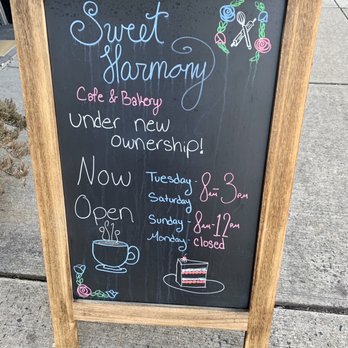 Sweet
Harmony
Cafe & Bakery
under new
ownership!
Now
Open
Tuesday - 8am - 3pm
Saturday
Sunday - 8am - 12pm
Monday - closed